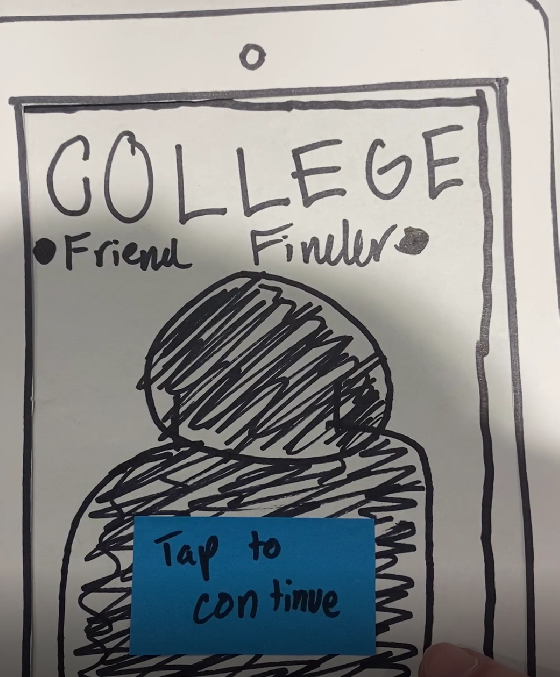 COLLEGE
• Friend Finder •
Tap to
continue